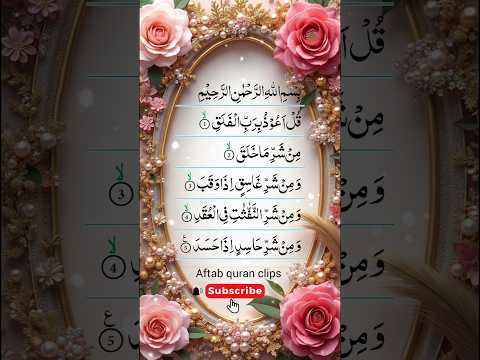 بِسْمِ اللهِ الرَّحْمٰنِ الرَّحِيْمِ
قُلْ اَعُوْذُ بِرَبِّ الْفَلَقِ ۙ﴿1﴾
مِنْ شَرِّ مَا خَلَقَ ۙ﴿2﴾
وَ مِنْ شَرِّ غَاسِقٍ اِذَا وَقَبَ ۙ﴿3﴾
وَ مِنْ شَرِّ النَّفّٰثٰتِ فِى الْعُقَدِ ۙ﴿4﴾
وَ مِنْ شَرِّ حَاسِدٍ اِذَا حَسَدَ ﴿5﴾ ع
Aftab quran clips
Subscribe